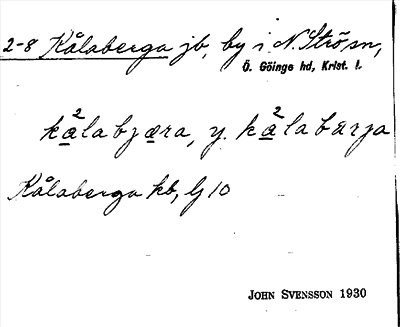 2-8 Kålaberga jb, by i N. Strö sn,
Ö. Göinge hd, Krist. l.
kålabjæra, y. kålabärja
Kålaberga kb, Lj 10
JOHN SVENSSON 1930